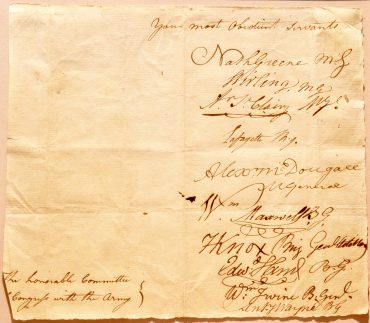 Your most Obedient Servants
Nath Greene M.G
Stirling, MG
Ar. St. Clair, M.G.
Lafayette M.g.
Alexr. McDougall
M General
Wm. Maxwell B G
H Knox B. Genl Artillery
Edwd. Hand B.G.
Wm. Irvine B. Genl.
Anty. Wayne B G
The honorable Committee
Congress with the Army